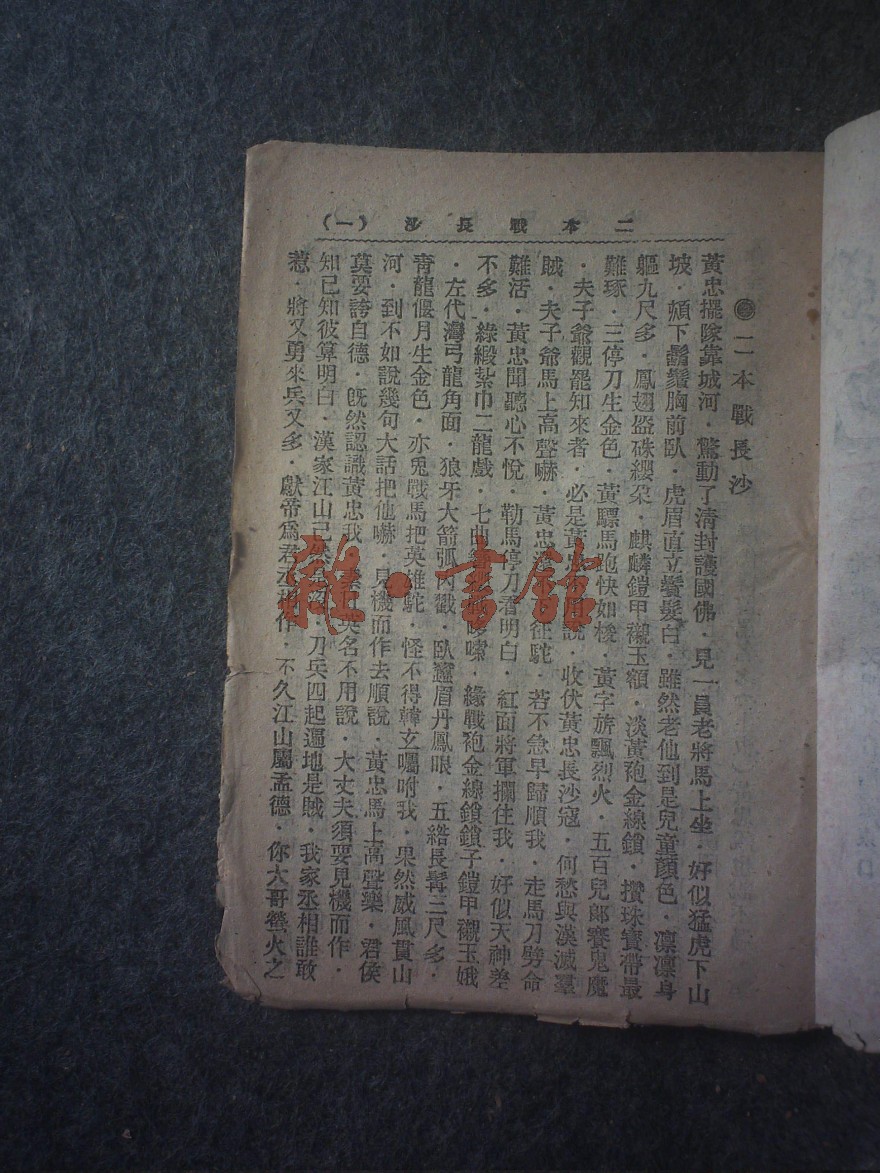 二本戰長沙（一）
㊁二本戰長沙
黃忠擺隊靠城河．驚動了清封護國佛．見一員老將馬上坐．好似猛虎下山
坡．頦下鬍鬚胸前臥．虎眉直立鬢髮白．雖然老他到是兒童顏色．凛凛身
軀九尺多．鳳翅盔硃纓朶．麒麟鎧甲襯玉額．淡黃袍金線鎖．攢珠寶帶最
難琢．三停刀生金色．黃驃馬跑快如梭．黃字旂飄烈火．五百兒郞賽鬼魔
．夫子爺觀罷知來者．必是黃忠說．收伏黃忠長沙寇．何愁與漢滅羣
賊．夫子爺馬上高聲嚇．黃忠征駝．若不急早歸順我．走馬刀劈命
難活．黃忠聞聽心不悅．勒馬停刀看明白．紅面將軍攔住我．好似天神差
不多．綠緞紮巾二龍戲．七曲嗦．綠戰袍金線鎖鎖子鎧甲襯玉娥
．左代灣弓龍角面．狼牙大箭弧戳．臥蠶眉丹鳳眼．五綹長髯三尺多．
靑龍偃月生金色．亦兎戰馬把英雄駝．怪不得韓玄囑咐我．果然威風貫山
河．到不如說幾句大話把他嚇．見機而作去順說．黃忠馬上高聲樂．君侯
莫要誇自德．旣然認識黃忠我．英名不用說．大丈夫須要見機而作．
知己知彼算明白．漢家江山已然．刀兵四起遍地是賊．我家丞相誰敢
惹．將又勇來兵又多．獻帝爲君丞相作．不久江山屬孟德．你大哥螢火之
雜·書館